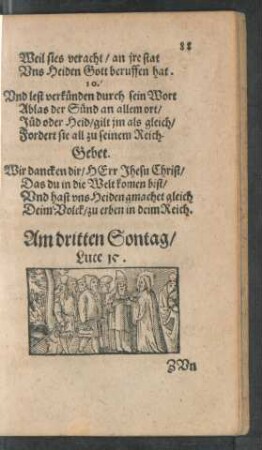 81
Weil sies veracht / an jre stat
Vns Heiden Gott beruffen hat.
10.
Vnd lest verkünden durch sein Wort
Ablas der Sünd an allem ort /
Jüd oder Heid / gilt jm als gleich /
Fordert sie all zu seinem Reich.
Gebet.
Wir dancken dir / HErr Jhesu Christ /
Das du in die Welt komen bist /
Vnd hast vns Heiden gmachet gleich
Deim Volck / zu erben in deim Reich.
Am dritten Sontag /
Luce 15.